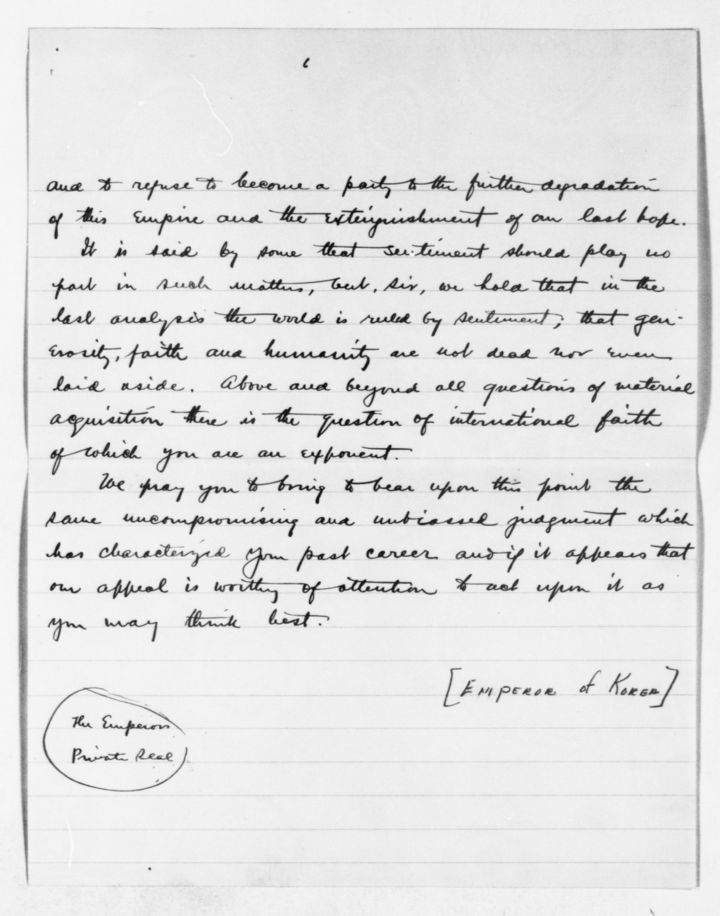 6
and to refuse to become a party to the further degradation
of this Empire and the extinguishment of our last hope.
It is said by some that sentiment should play no
part in such matters, but, sir, we hold that in the
last analysis the world is ruled by sentiment; that gen-
erosity, faith and humanity are not dead nor even
laid aside. Above and beyond all questions of material
acquisition there is the question of international faith
of which you are an exponent.
We pray you to bring to bear upon this point the
same uncompromising and unbiassed judgment which
has characterized your past career and if it appears that
our appeal is worthy of attention to act upon it as
you may think best.
[Emperor of Korea]
The Emperors
Private Seal